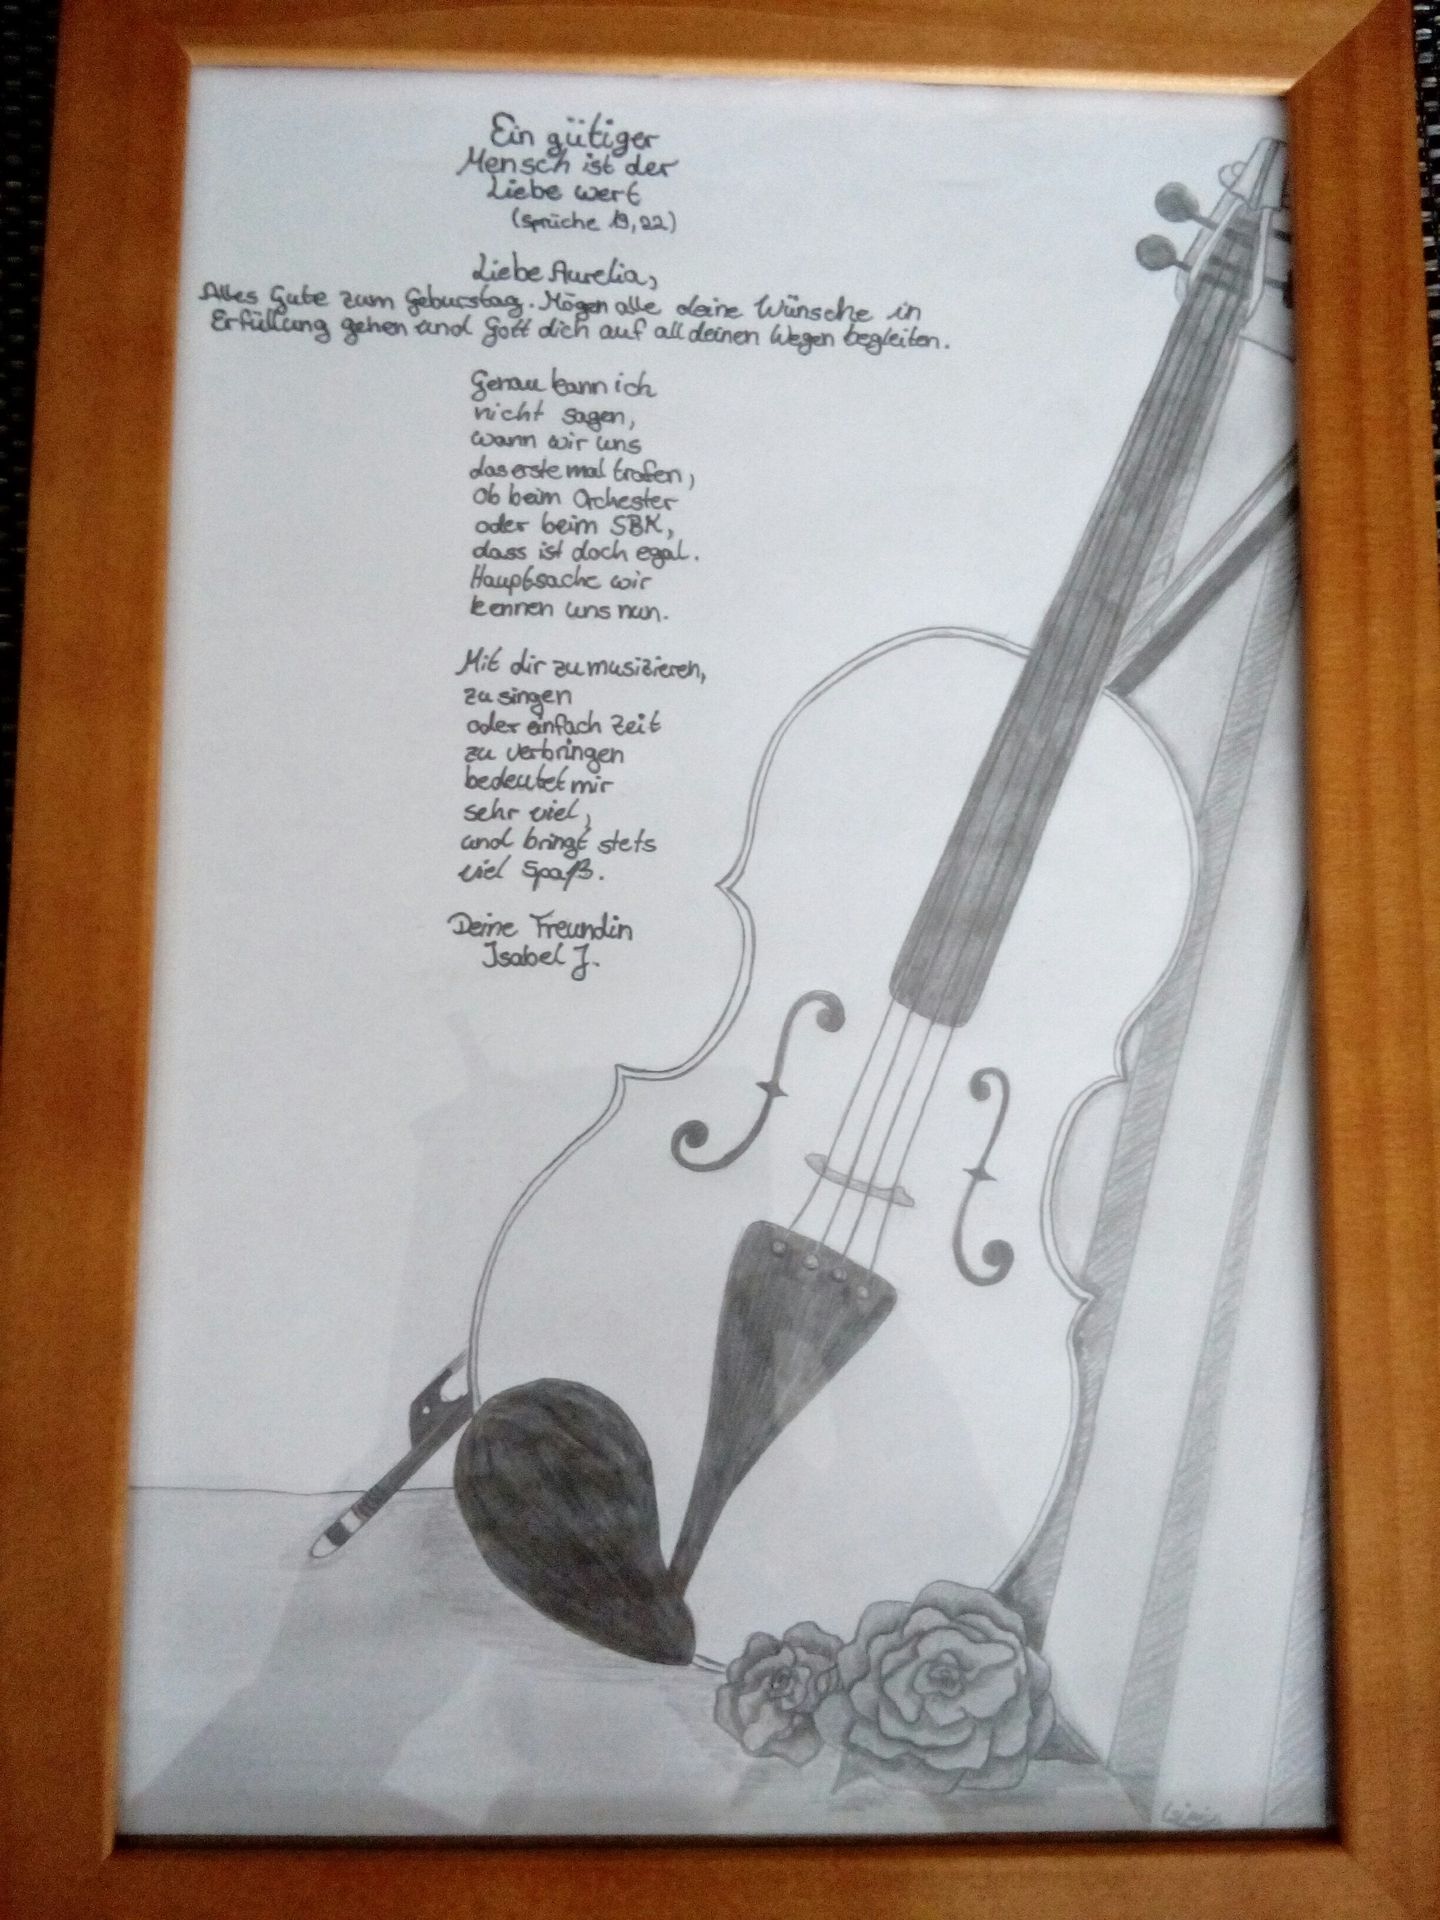 Ein gütiger
Mensch ist der
Liebe wert
(Sprüche 19,22)
Liebe Aurelia,
Alles Gute zum Geburstag. Mögen alle deine Wünsche in
Erfüllung gehen und Gott dich auf all deinen Wegen begleiten.
Genau kann ich
nicht sagen,
wann wir uns
das erste mal trafen,
Ob beim Orchester
oder beim SBK,
dass ist doch egal.
Hauptsache wir
kennen uns nun.
Mit dir zu musizieren,
zu singen
oder einfach Zeit
zu verbringen
bedeutet mir
sehr viel,
und bringt stets
viel Spaß.
Deine Freundin
Isabel J.